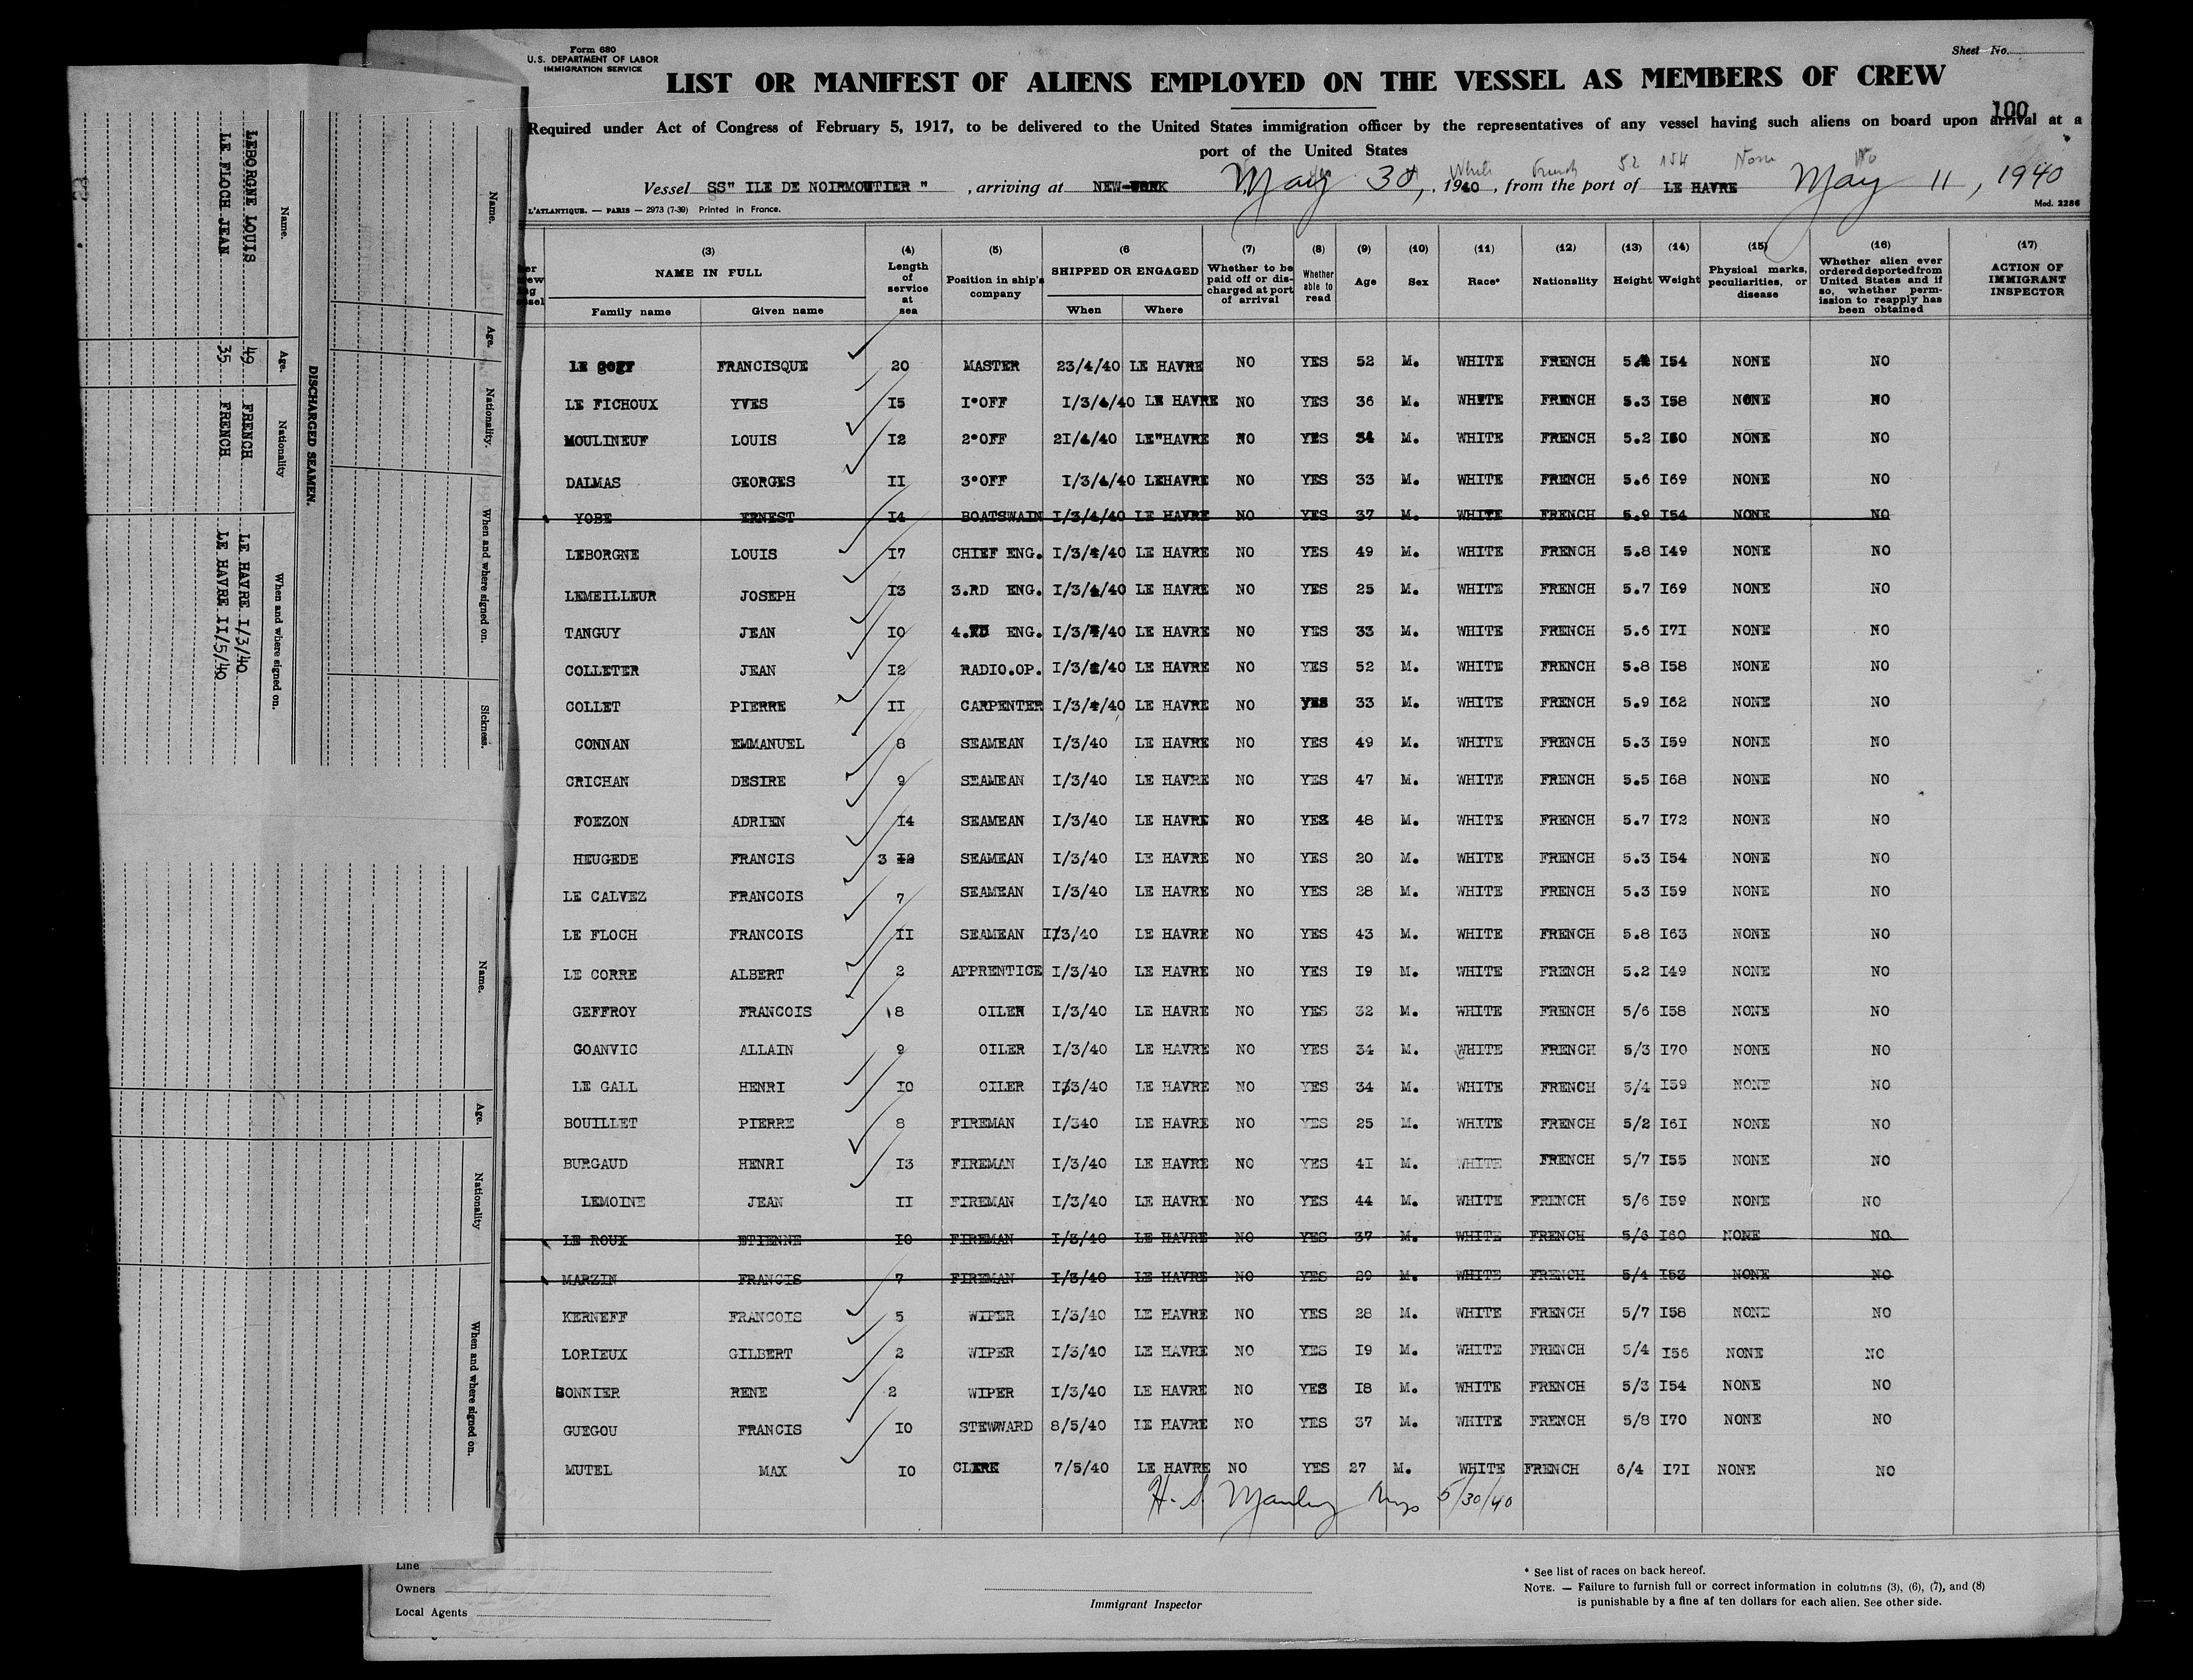 Form 680
U.S. DEPARTMENT OF LABOR
IMMIGRATION SERVICE
Sheet No.
LIST OR MANIFEST OF ALIENS EMPLOYED ON THE VESSEL AS MEMBERS OF CREW
100
Required under Act of Congress of February 5, 1917, to be delivered to the United States immigration officer by the representatives of any vessel having such aliens on board upon arrival at a
port of the United States
White French 52 154 None No
Vessel SS" ILE DE NOIRMOUTIER ", arriving at NEW-YORK May 30, 1940, from the port of LE HAVRE May 11, 1940
L'ATLANTIQUE. — PARIS — 2973 (7-39) Printed in France.
Mod. 2286
(3) (4) (5) (6 (7) (8) (9) (10) (11) (12) (13) (14) (15) (16) (17)
NAME IN FULL
Family name Given name
Length of service at sea
Position in ship's company
SHIPPED OR ENGAGED
When Where
Whether to be paid off or discharged at port of arrival
Whether able to read
Age Sex Race* Nationality Height Weight
Physical marks, peculiarities, or disease
Whether alien ever ordered deported from United States and if so, whether permission to reapply has been obtained
ACTION OF IMMIGRANT INSPECTOR
LE FRANCISQUE 20 MASTER 23/4/40 LE HAVRE NO YES 52 M. WHITE FRENCH I54 NONE NO
LE FICHOUX YVES I5 I°OFF I/3/4/40 LE HAVRE NO YES 36 M. WHITE FRENCH 5.3 I58 NONE NO
MOULINEUF LOUIS I2 2°OFF 2I/4/40 LE"HAVRE NO YES 34 M. WHITE FRENCH 5.2 I60 NONE NO
DALMAS GEORGES II 3°OFF I/3/4/40 LEHAVRE NO YES 33 M. WHITE FRENCH 5.6 I69 NONE NO
YOBE ERNEST I4 BOATSWAIN I/3/4/40 LE HAVRE NO YES 37 M. WHITE FRENCH 5.9 I54 NONE NO
LEBORGNE LOUIS I7 CHIEF ENG. I/3/4/40 LE HAVRE NO YES 49 M. WHITE FRENCH 5.8 I49 NONE NO
LEMEILLEUR JOSEPH I3 3.RD ENG. I/3/4/40 LE HAVRE NO YES 25 M. WHITE FRENCH 5.7 I69 NONE NO
TANGUY JEAN I0 4.RD ENG. I/3/4/40 LE HAVRE NO YES 33 M. WHITE FRENCH 5.6 I7I NONE NO
COLLETER JEAN I2 RADIO.OP. I/3/4/40 LE HAVRE NO YES 52 M. WHITE FRENCH 5.8 I58 NONE NO
COLLET PIERRE II CARPENTER I/3/4/40 LE HAVRE NO YES 33 M. WHITE FRENCH 5.9 I62 NONE NO
CONNAN EMMANUEL 8 SEAMEAN I/3/40 LE HAVRE NO YES 49 M. WHITE FRENCH 5.3 I59 NONE NO
CRICHAN DESIRE 9 SEAMEAN I/3/40 LE HAVRE NO YES 47 M. WHITE FRENCH 5.5 I68 NONE NO
FOEZON ADRIEN I4 SEAMEAN I/3/40 LE HAVRE NO YES 48 M. WHITE FRENCH 5.7 I72 NONE NO
HEUGEDE FRANCIS 3 I2 SEAMEAN I/3/40 LE HAVRE NO YES 20 M. WHITE FRENCH 5.3 I54 NONE NO
LE CALVEZ FRANCOIS 7 SEAMEAN I/3/40 LE HAVRE NO YES 28 M. WHITE FRENCH 5.3 I59 NONE NO
LE FLOCH FRANCOIS II SEAMEAN I/3/40 LE HAVRE NO YES 43 M. WHITE FRENCH 5.8 I63 NONE NO
LE CORRE ALBERT 2 APPRENTICE I/3/40 LE HAVRE NO YES I9 M. WHITE FRENCH 5.2 I49 NONE NO
GEFFROY FRANCOIS 8 OILER I/3/40 LE HAVRE NO YES 32 M. WHITE FRENCH 5/6 I58 NONE NO
GOANVIC ALLAIN 9 OILER I/3/40 LE HAVRE NO YES 34 M. WHITE FRENCH 5/3 I70 NONE NO
LE GALL HENRI I0 OILER I/3/40 LE HAVRE NO YES 34 M. WHITE FRENCH 5/4 I59 NONE NO
BOUILLET PIERRE 8 FIREMAN I/340 LE HAVRE NO YES 25 M. WHITE FRENCH 5/2 I6I NONE NO
BURGAUD HENRI I3 FIREMAN I/3/40 LE HAVRE NO YES 4I M. WHITE FRENCH 5/7 I55 NONE NO
LEMOINE JEAN II FIREMAN I/3/40 LE HAVRE NO YES 44 M. WHITE FRENCH 5/6 I59 NONE NO
LE ROUX ETIENNE I0 FIREMAN I/3/40 LE HAVRE NO YES 37 M. WHITE FRENCH 5/6 I60 NONE NO
MARZIN FRANCIS 7 FIREMAN I/3/40 LE HAVRE NO YES 29 M. WHITE FRENCH 5/4 I53 NONE NO
KERNEFF FRANCOIS 5 WIPER I/3/40 LE HAVRE NO YES 28 M. WHITE FRENCH 5/7 I58 NONE NO
LORIEUX GILBERT 2 WIPER I/3/40 LE HAVRE NO YES I9 M. WHITE FRENCH 5/4 I56 NONE NO
SONNIER RENE 2 WIPER I/3/40 LE HAVRE NO YES I8 M. WHITE FRENCH 5/3 I54 NONE NO
GUEGOU FRANCIS I0 STEWWARD 8/5/40 LE HAVRE NO YES 37 M. WHITE FRENCH 5/8 I70 NONE NO
MUTEL MAX I0 CLERK 7/5/40 LE HAVRE NO YES 27 M. WHITE FRENCH 6/4 I7I NONE NO
H. S. Manley Insp 5/30/40
Line
Owners
Local Agents
Immigrant Inspector
* See list of races on back hereof.
NOTE. — Failure to furnish full or correct information in columns (3), (6), (7), and (8)
is punishable by a fine af ten dollars for each alien. See other side.
Name. Age. Nationality. When and where signed on. Sickness.
DISCHARGED SEAMEN.
Name. Age. Nationality When and where signed on.
LEBORGNE LOUIS 49 FRENCH LE HAVRE I/3/40
LE FLOCH JEAN 35 FRENCH LE HAVRE II/5/40
Name. Age. Nationality When and where signed on.